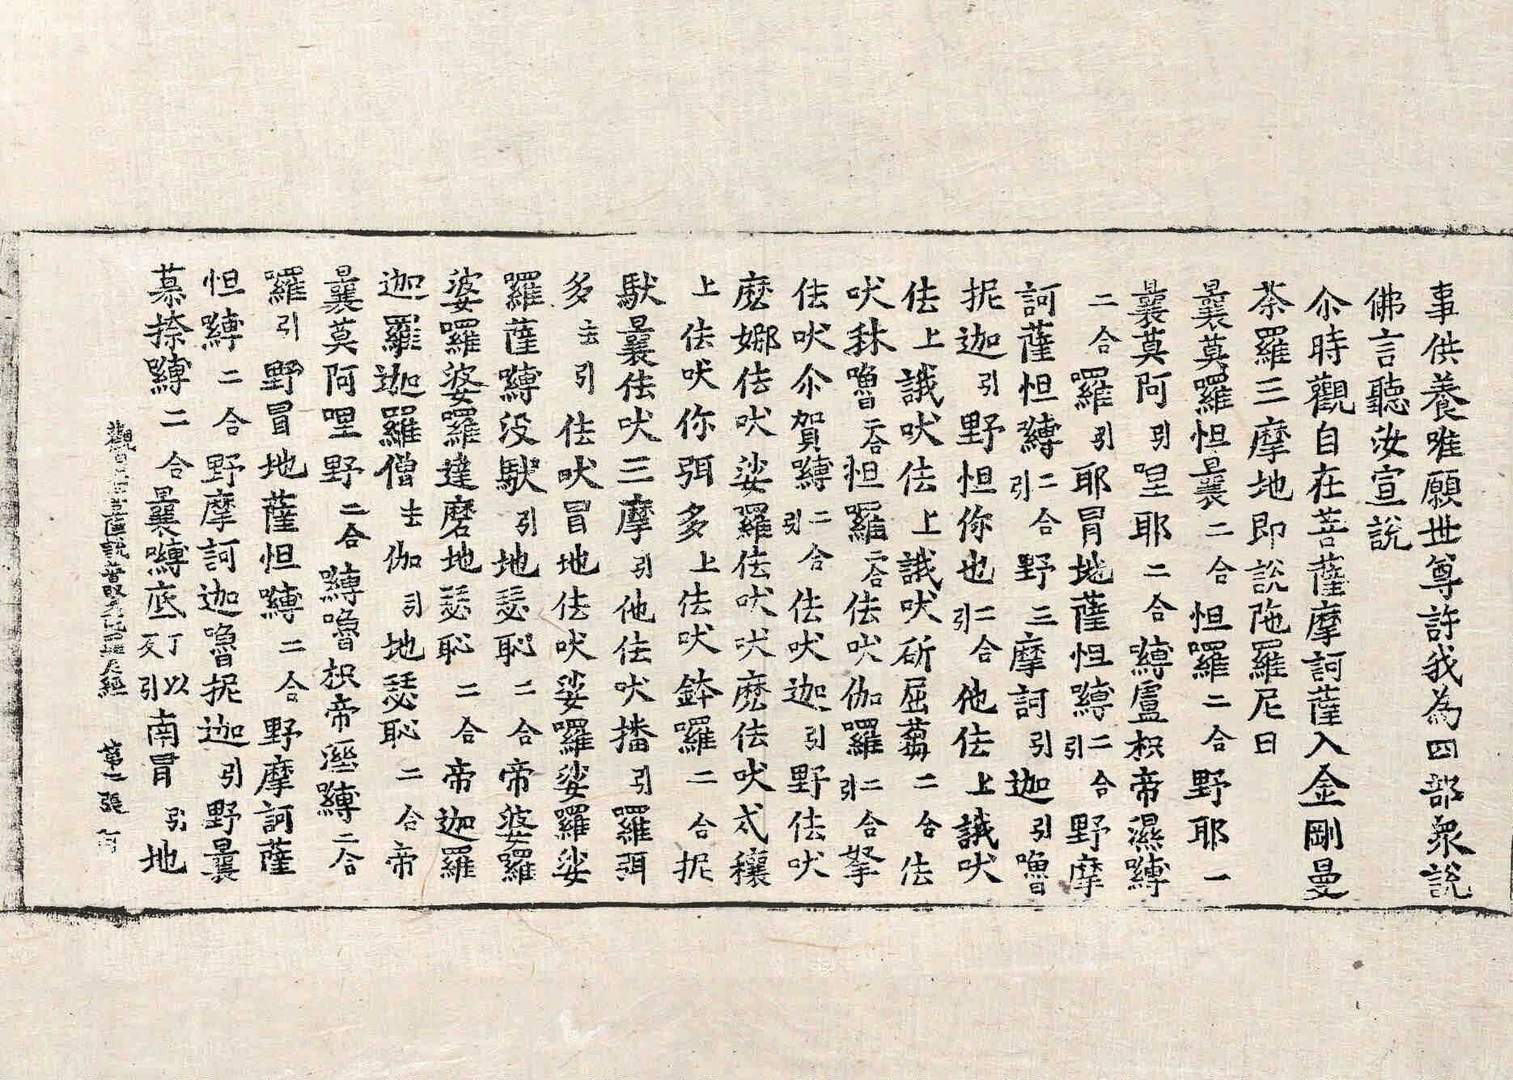 事供養唯願世尊許我為四部衆說
佛言聽汝宣說
尒時觀自在菩薩摩訶薩入金剛曼
荼羅三摩地即說陁羅尼曰
曩莫羅怛曩二合怛羅二合野耶一
曩莫阿引哩耶二合嚩盧枳帝濕嚩
二合羅引耶冐地薩怛嚩引二合野摩
訶薩怛嚩引二合野三摩訶引迦引嚕
抳迦引野怛你也引二合他佉上誐吠
佉上誐吠佉上誐吠斫屈蒭二合佉
吠秫嚕二合怛羅二合佉吠伽羅引二合拏
佉吠尒賀嚩引二合佉吠迦引野佉吠
麽娜佉吠娑羅佉吠吠麽佉吠式穰
上佉吠你弭多上佉吠鉢羅二合抳
馱曩佉吠三摩引他佉吠播引羅弭
多去引佉吠冒地佉吠娑囉娑羅娑
羅薩嚩没馱引地瑟恥二合帝婆羅
婆囉婆羅達磨地瑟恥二合帝迦羅
迦羅迦羅僧去伽引地瑟恥二合帝
曩莫阿哩野二合嚩嚕枳帝溼嚩二合
囉引野冒地薩怛嚩二合野摩訶薩
怛嚩二合野摩訶迦嚕抳迦引野曩
慕捺嚩二合曩嚩底丁以反引南冐引地
觀自在菩薩說普賢陁羅尼經 第二張 何